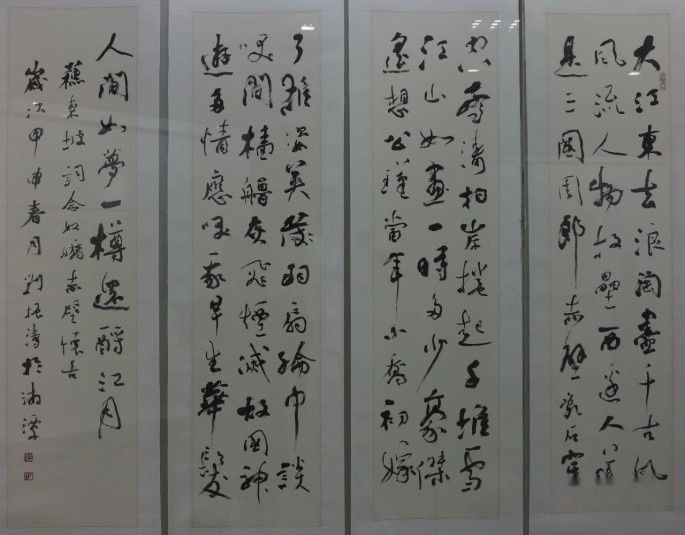 大江東去浪淘盡千古风
风流人物故壘西邊人道
是三國周郎赤壁亂石穿
空驚濤拍岸捲起千堆雪
江山如畫一時多少豪傑
遙想公瑾當年小喬初嫁
了雄姿英發羽扇綸巾談
笑間檣艣灰飛煙滅故國神
遊多情應笑我早生華髮
人間如夢一樽還酹江月
蘇東坡詞念奴嬌赤壁懷古
歲次甲申春月劉振濤於湘潭